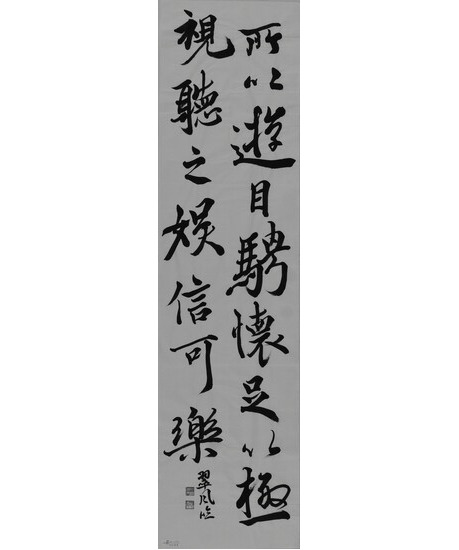 所以遊目騁懷足以極
視聽之娯信可樂
翠風臨